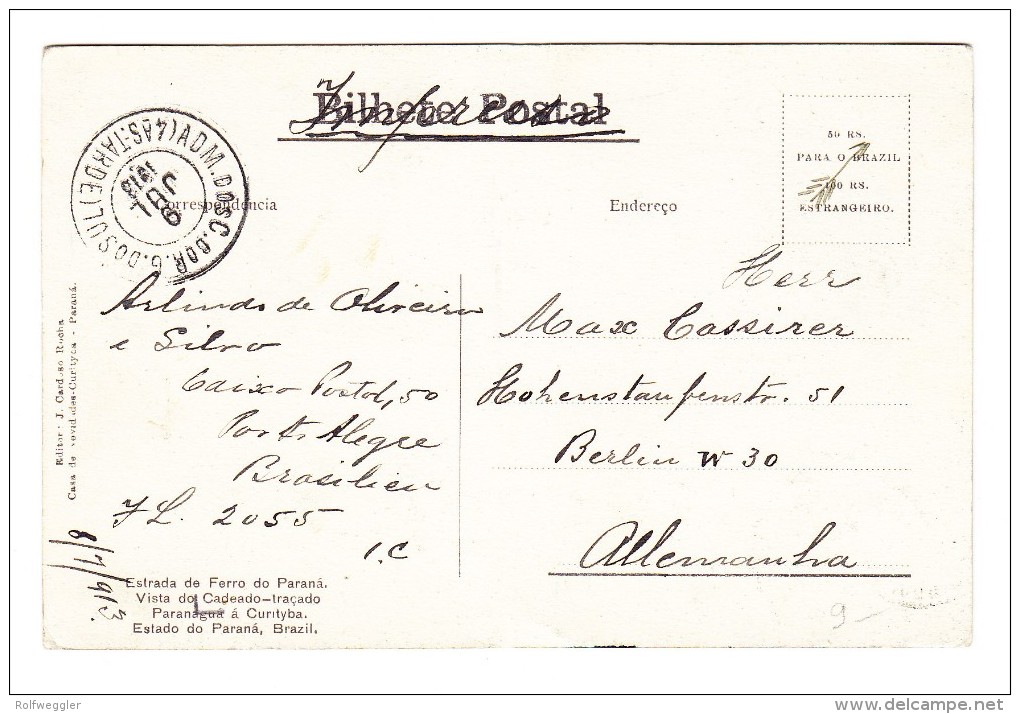 Bilhete Postal
Impresso
ADM. DOS C. DO R. G. DO SUL (4ªS TARDE)
1913
50 RS.
PARA O BRAZIL
100 RS.
ESTRANGEIRO.
Correspondencia
Endereço
Arlindo de Oliveira
e Silva
Caixa Postal, 50
Porto Alegre
Brasilien
J L. 2055
I. C
8/7/913.
Herr
Max Cassirer
Hohenstaufenstr. 51
Berlin W 30
Allemanha
Editor: J. Cardoso Rocha
Casa de Novidades-Curityba - Paraná.
Estrada de Ferro do Paraná.
Vista do Cadeado-traçado
Paranaguá á Curityba.
Estado do Paraná, Brazil.
9-
Rolfweggler
delcampe.net